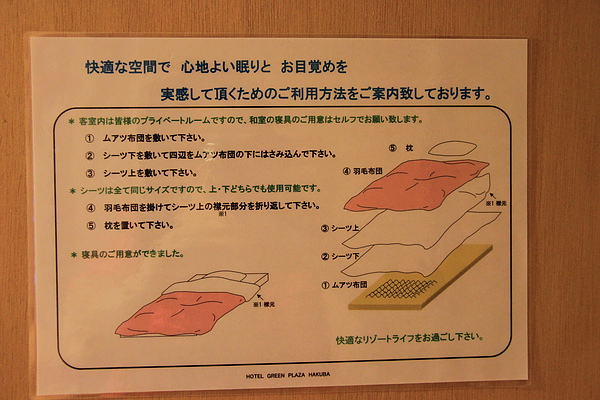 快適な空間で 心地よい眠りと お目覚めを
実感して頂くためのご利用方法をご案内致しております。
* 客室内は皆様のプライベートルームですので、和室の寝具のご用意はセルフでお願い致します。
① ムアツ布団を敷いて下さい。
② シーツ下を敷いて四辺をムアツ布団の下にはさみ込んで下さい。
③ シーツ上を敷いて下さい。
* シーツは全て同じサイズですので、上・下どちらでも使用可能です。
④ 羽毛布団を掛けてシーツ上の襟元部分を折り返して下さい。
※1
⑤ 枕を置いて下さい。
* 寝具のご用意ができました。
※1 襟元
⑤ 枕
④ 羽毛布団
※1 襟元
③ シーツ上
② シーツ下
① ムアツ布団
快適なリゾートライフをお過ごし下さい。
HOTEL GREEN PLAZA HAKUBA